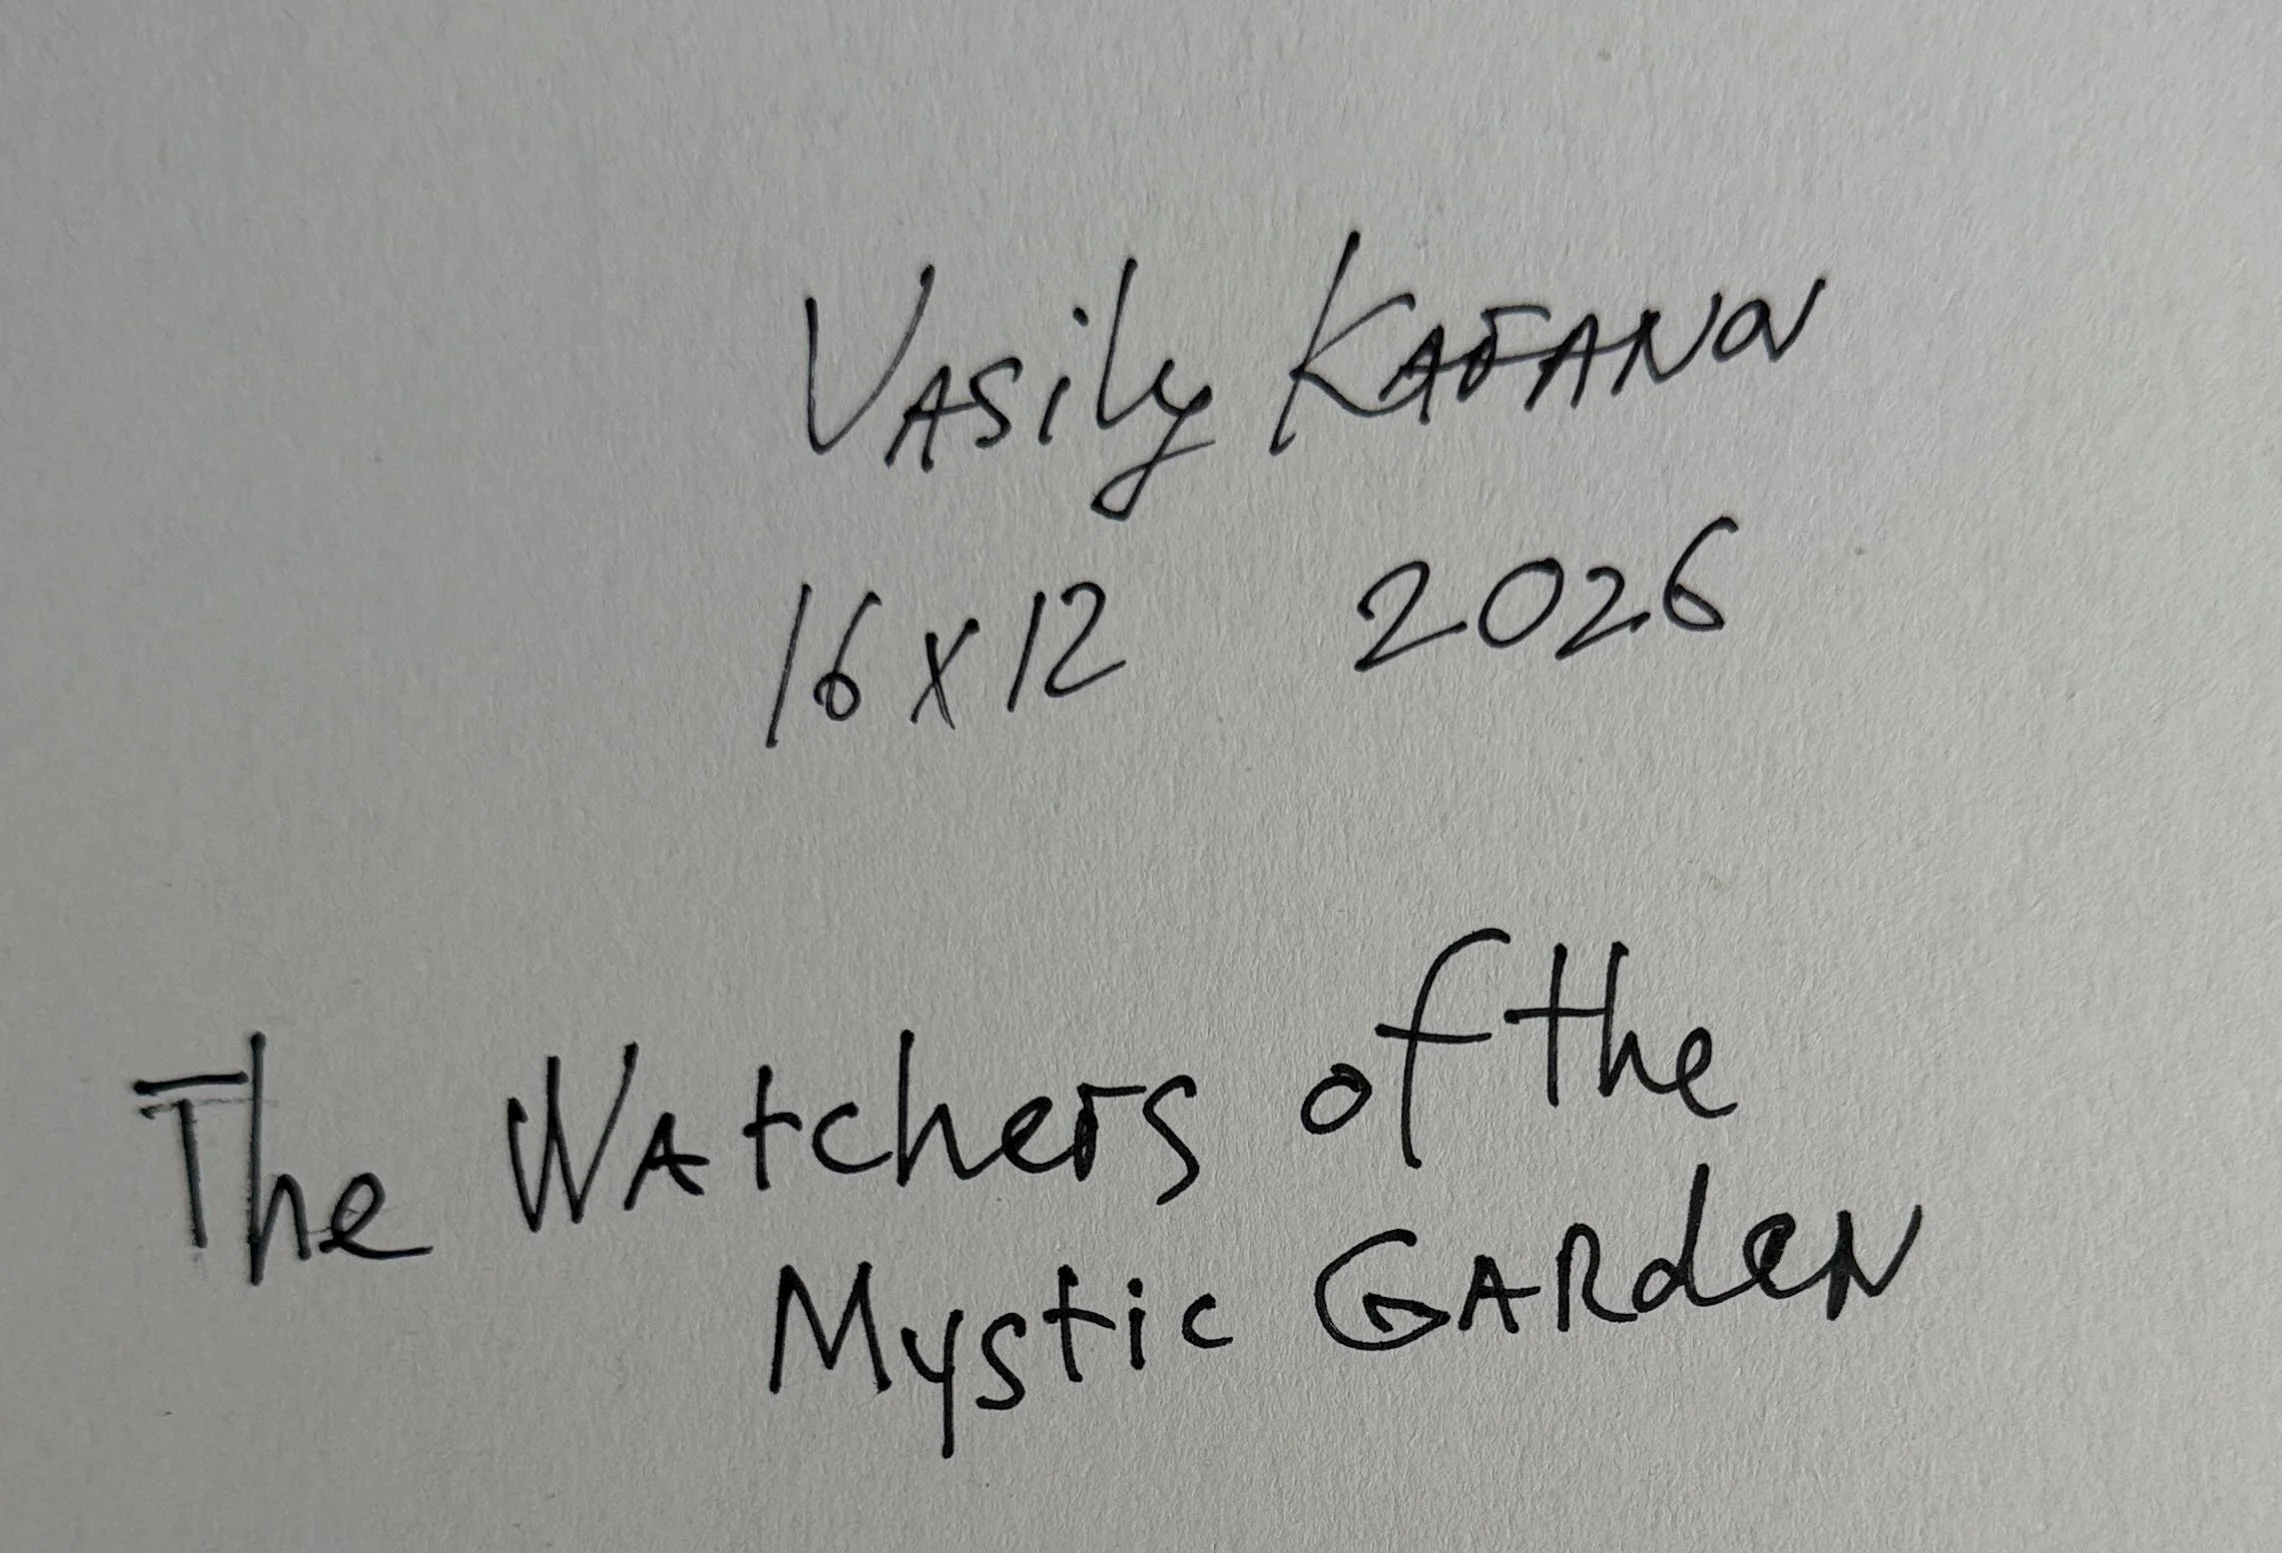 Vasily Kafanov
16x12 2026
The Watchers of the
Mystic Garden